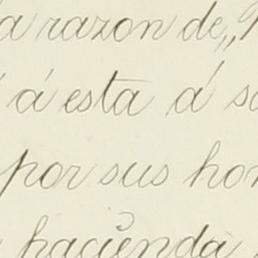 razon de „
á esta á
por sus
hacienda